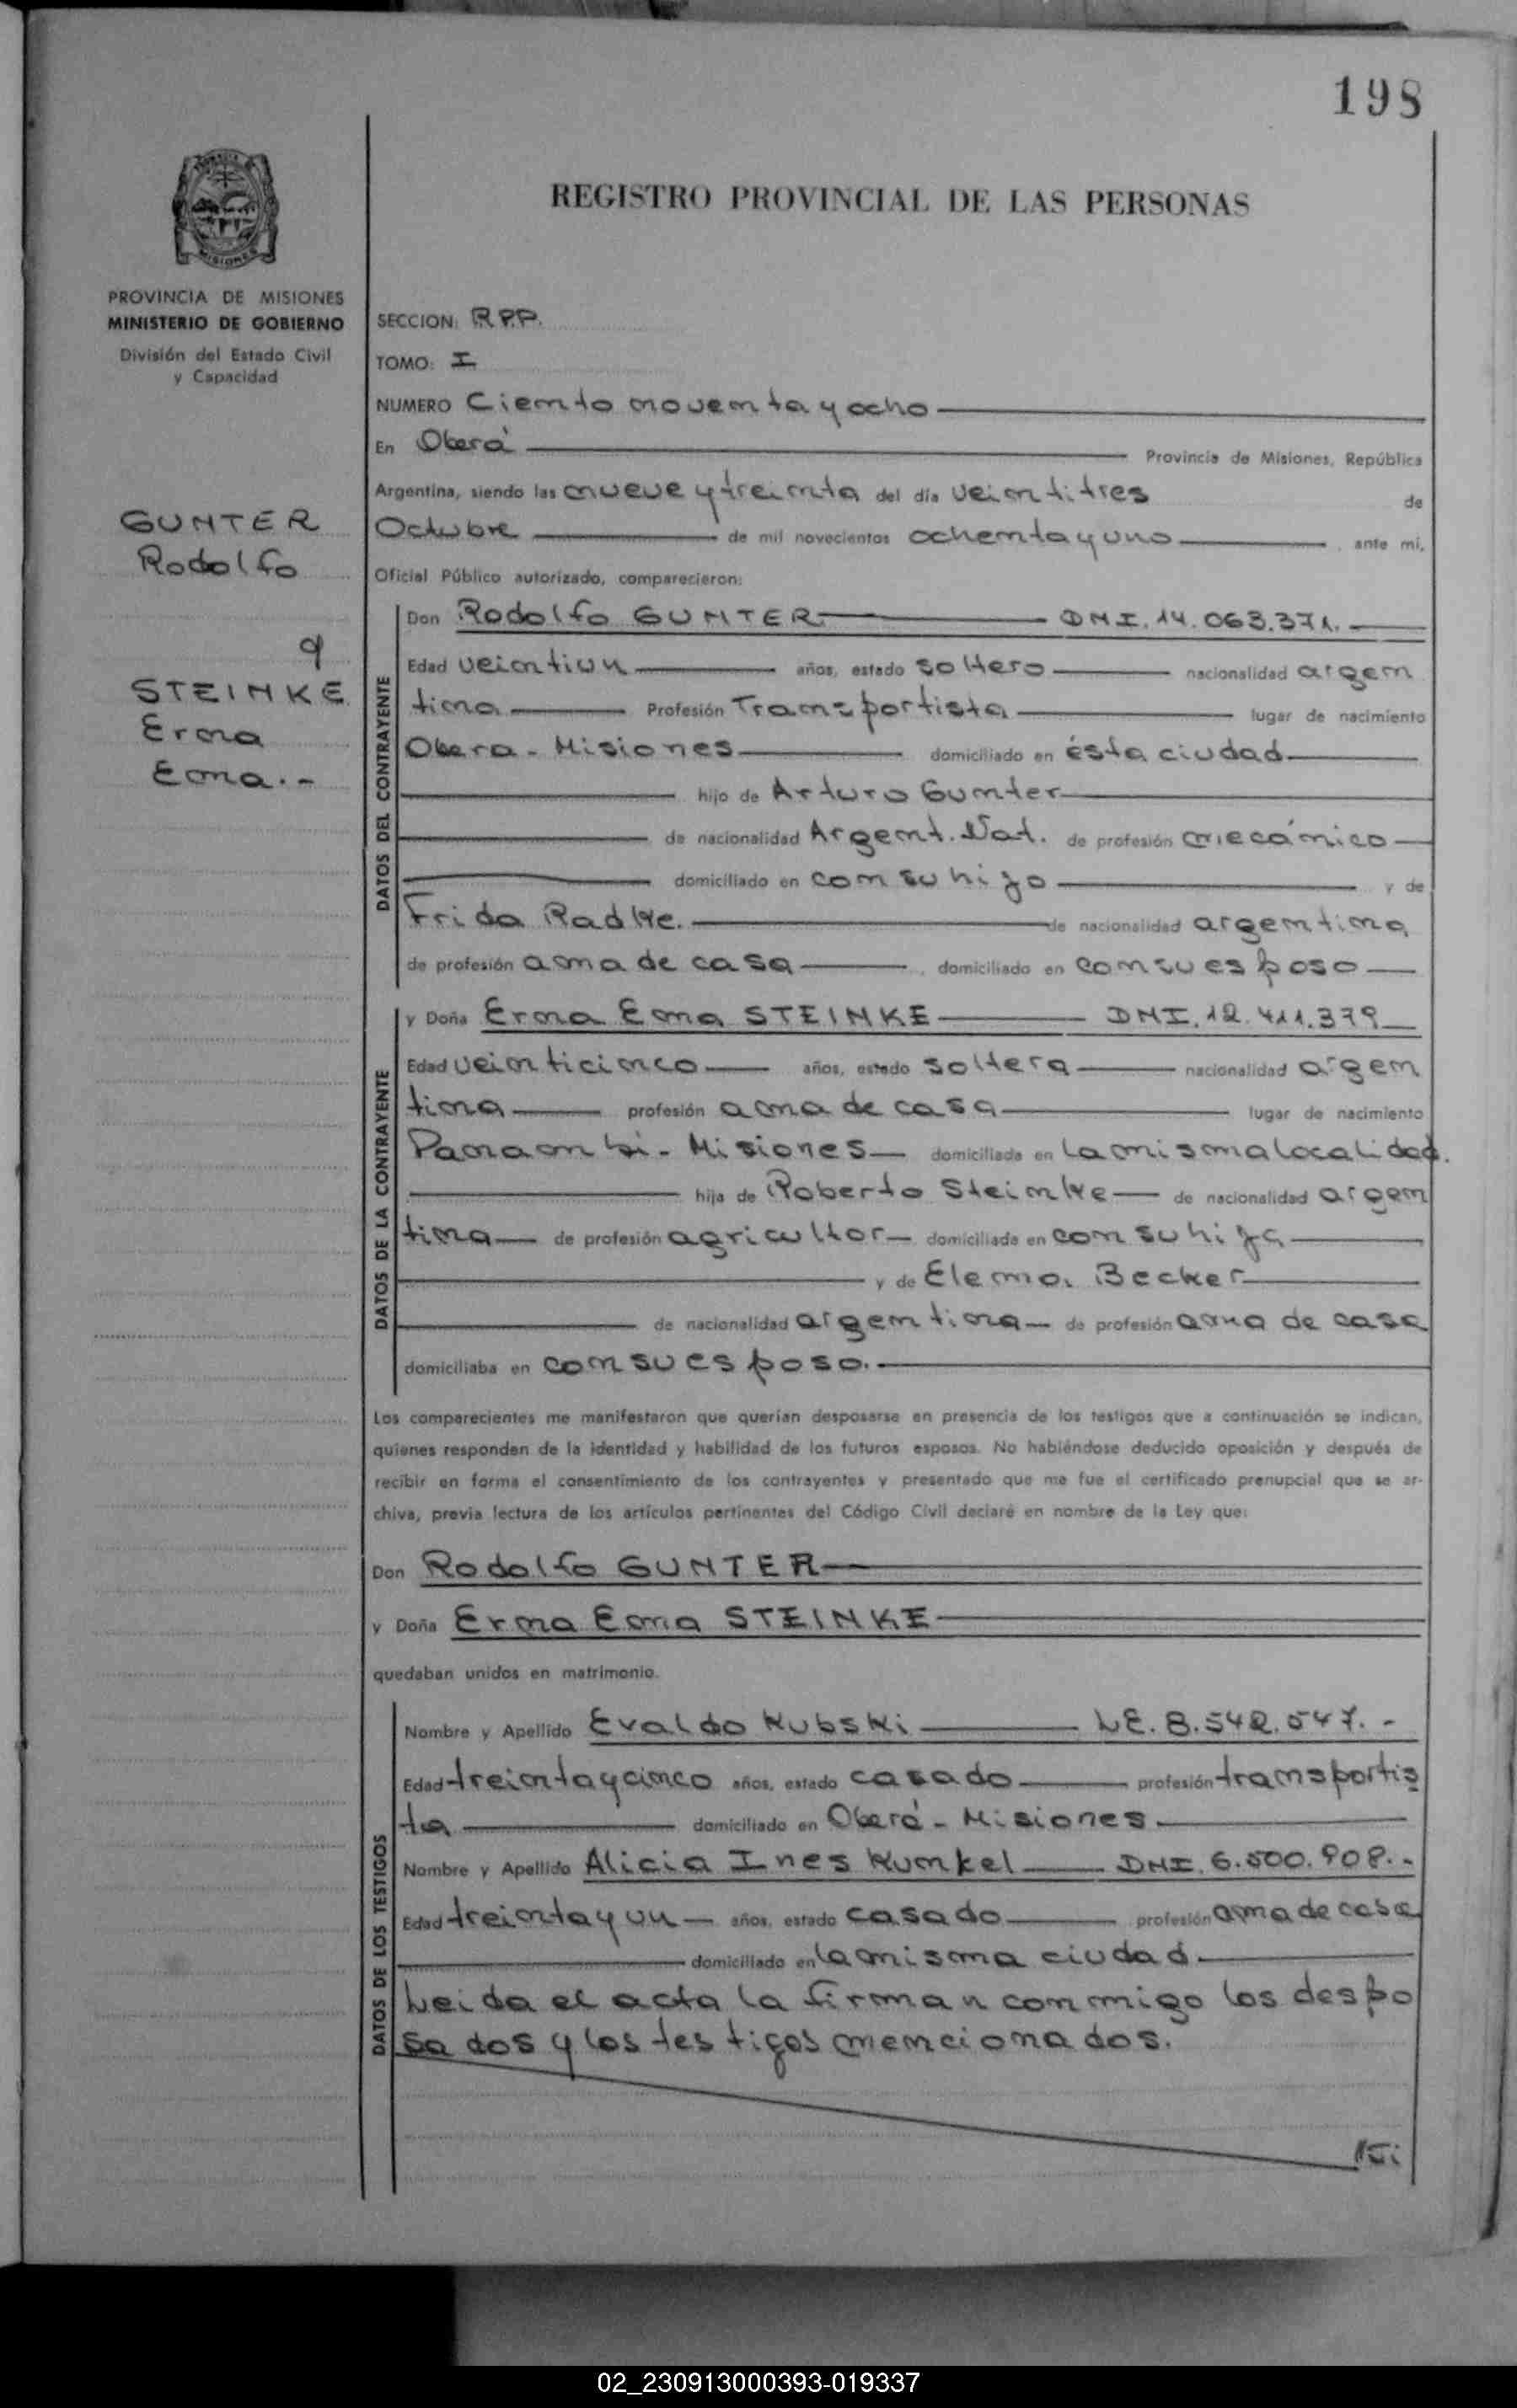 198
REGISTRO PROVINCIAL DE LAS PERSONAS
MISIONES
PROVINCIA DE MISIONES
MINISTERIO DE GOBIERNO
División del Estado Civil
y Capacidad
GUNTER
Rodolfo
y
STEINKE
Erna
Ema.-
SECCION: R.P.P.
TOMO: I
NUMERO Ciento noventa y ocho
En Oberá Provincia de Misiones, República
Argentina, siendo las nueve y treinta del día veintitres de
Octubre de mil novecientos ochenta y uno, ante mi,
Oficial Público autorizado, comparecieron:
DATOS DEL CONTRAYENTE
Don Rodolfo GUNTER DNI. 14.063.371.
Edad veintiun años, estado soltero nacionalidad argen
tina Profesión Transportista lugar de nacimiento
Obera - Misiones domiciliado en ésta ciudad
hijo de Arturo Gunter
de nacionalidad Argent. Nat. de profesión mecánico
domiciliado en con su hijo y de
Frida Radke. de nacionalidad argentina
de profesión ama de casa, domiciliado en con su esposo
DATOS DE LA CONTRAYENTE
y Doña Erna Ema STEINKE DNI. 12.411.379
Edad veinticinco años, estado soltera nacionalidad argen
tina profesión ama de casa lugar de nacimiento
Panambi - Misiones domiciliada en la misma localidad.
hija de Roberto Steinke de nacionalidad argen
tina de profesión agricultor domiciliada en con su hija
y de Elena Becker
de nacionalidad argentina de profesión ama de casa
domiciliaba en con su esposo.
Los comparecientes me manifestaron que querían desposarse en presencia de los testigos que a continuación se indican,
quienes responden de la identidad y habilidad de los futuros esposos. No habiéndose deducido oposición y después de
recibir en forma el consentimiento de los contrayentes y presentado que me fue el certificado prenupcial que se ar-
chiva, previa lectura de los artículos pertinentes del Código Civil declaré en nombre de la Ley que:
Don Rodolfo GUNTER
y Doña Erna Ema STEINKE
quedaban unidos en matrimonio.
DATOS DE LOS TESTIGOS
Nombre y Apellido Evaldo Kubski LE. 8.542.547.-
Edad treinta y cinco años, estado casado profesión transportis
ta domiciliado en Oberá - Misiones
Nombre y Apellido Alicia Ines Kunkel DNI. 6.500.908.-
Edad treinta y un años, estado casado profesión ama de casa
domiciliado en la misma ciudad
Leida el acta la firman conmigo los despo
sados y los testigos mencionados.
02_230913000393-019337